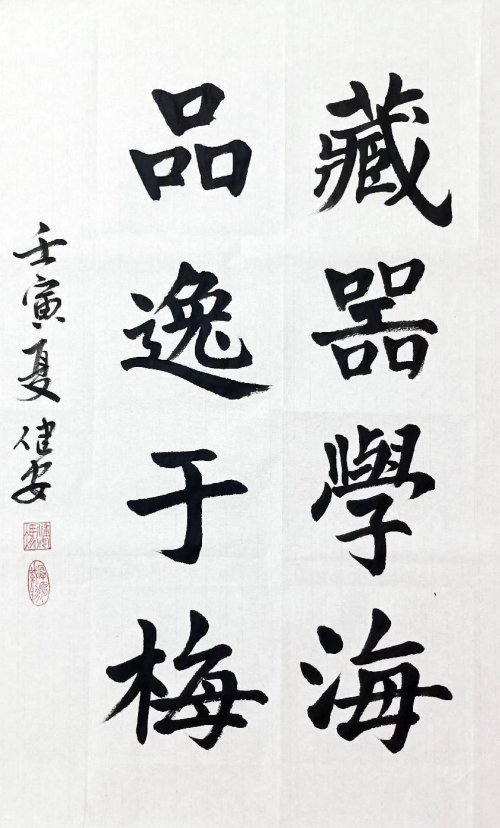 藏器學海
品逸于梅
壬寅夏健安